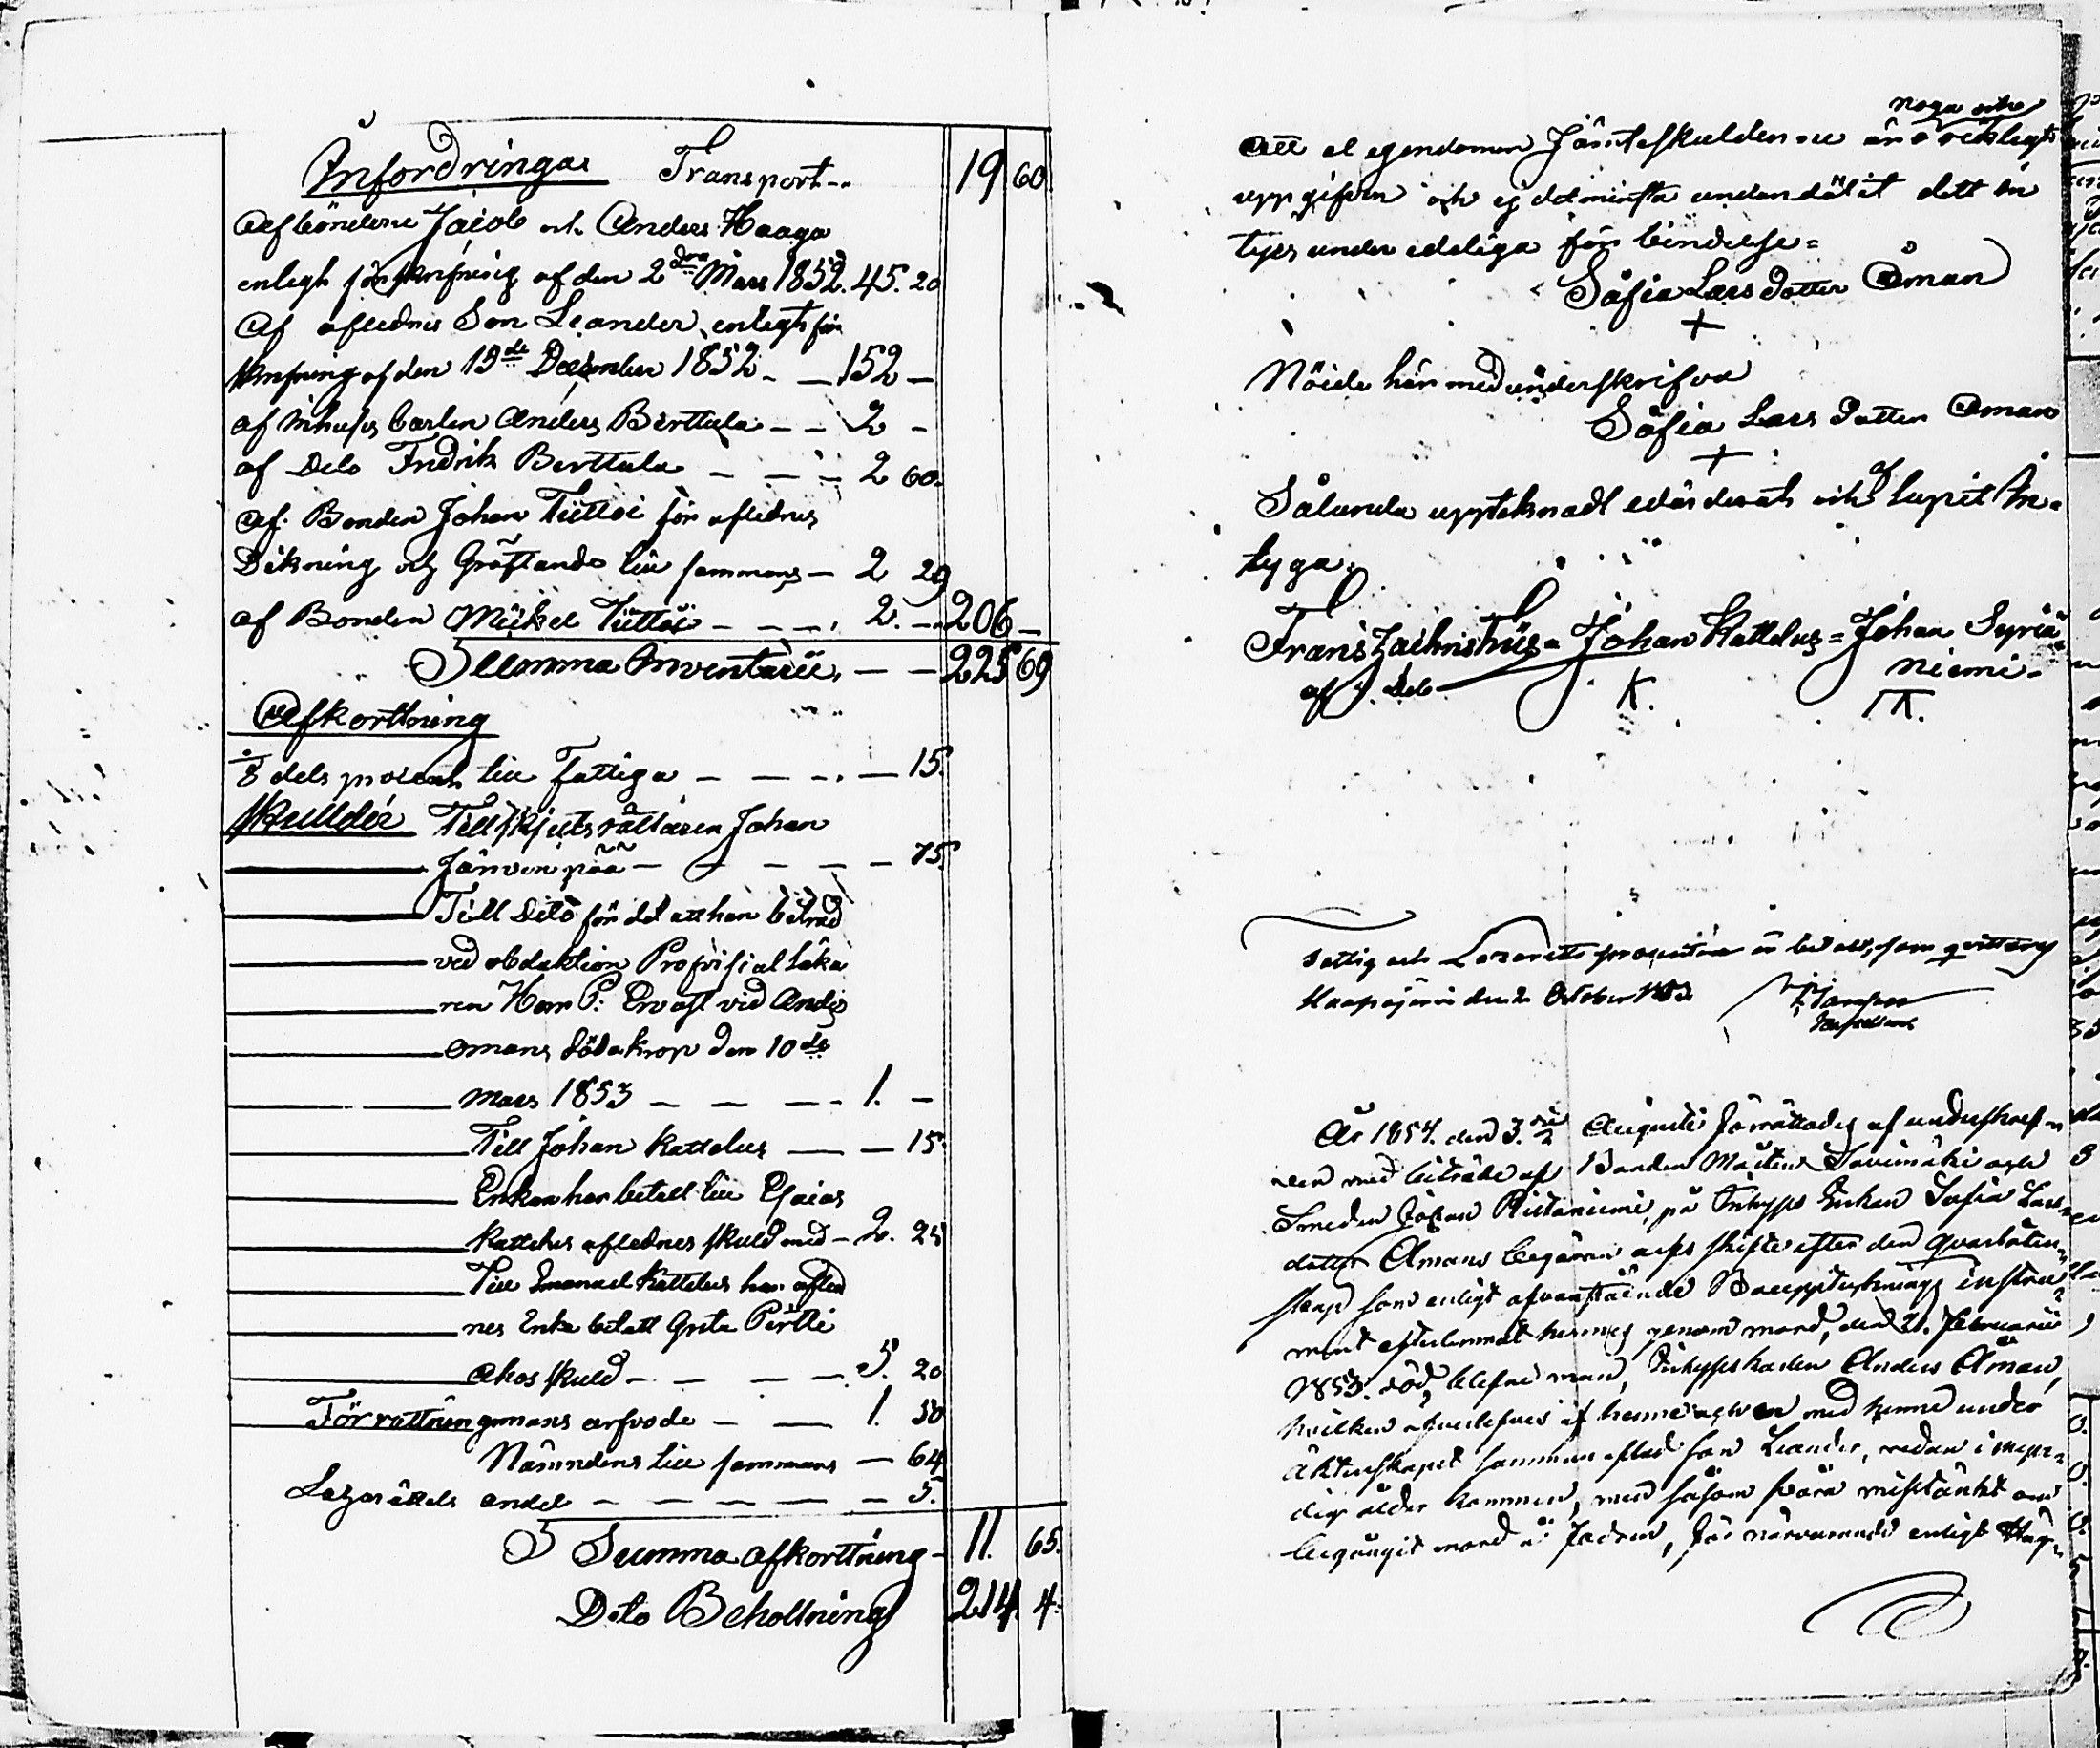 Infordringar Transport -- 19 60
Af bönderne Jacob och Anders Haaga
enligt förskrifning af den 2dra Mars 1852. 45. 20
Af aflednes Son Leander, enligt för
skrifning af den 15de December 1852 - - 152 -
af Inhyses karlen Anders Berttula - - 2 -
af Dito Fredrik Berttula - - - 2 60.
Af Bonden Johan Tiittoi för aflednes
Dikning och Gräftande till sammans - 2 29
af Bonden Mickel Tiittoi - - - . 2. - 206 -
Summa Inventarii, - - 225 69
Afkorttning
1/8 dels procent till Fattiga - - - . - 15.
Skullder Till skjuts rättaren Johan
Järvenpää - - - - - 75.
Till Dito för det att han biträd
ved obduktion Provisial läka
ren Herr P: Ervast vid Anders
omans döda krop den 10de
Mars 1853 - - - - 1. -
Till Johan Kattelus - - 15.
Enkan har betalt till Esaias
Kattelus aflednes skuld med - 2. 25
Till Emanuel Kattelus har afled
nes Enka betalt Greta Pirtti
ahos skuld - - - - 5. 20
Förrättningmans arfvode - - 1. 50
Nämndens till sammans - 64
Lazarättets andel - - - - - 5.
Summa afkorttning - 11. 65.
Dito Beholtning 214 4.
noga och
Att al egendomen Jämte skulden nu är ricktigt
uppgifven och ej det minsta undandålit dett in
tyes under edeliga för bindelse =
Sofia Lars Dotter Öman
+
Nöida här med underskrifva
Sofia Lars Dotter Öman
+
Sålunda uppteknadt värderat och af lupit In-
tyga.
Frans = Johan Kattelus = Johan Syriä
niemi -
af Dito K. K.
Fattig och Lazaretts procenten är betalt, som qvitterar
den 2 October 1853
År 1854. den 3.die Augusti förrättades af underskrif-
ven med biträde af Bonden Mårten Savimäki och
Smeden Johan Ristaniemi, på Inhyses Enkan Sofia Lars-
dotter Åmans begäran arfs skifte efter den qvarlåten-
skap som enligt ofvanstående Boupptecknings instru-
ment efterlemnat hennes genom mord, den 21. Februarii
1853. död blefne man, Inhyseskarlen Anders Åman,
hvilken af henne och en med henne under
äktenskapet sammanaflad son Leander, redan i
dig ålder kommen, men såsom svåra misstänkt om
begånget mord å Fadren, för närvarande enligt Hög-